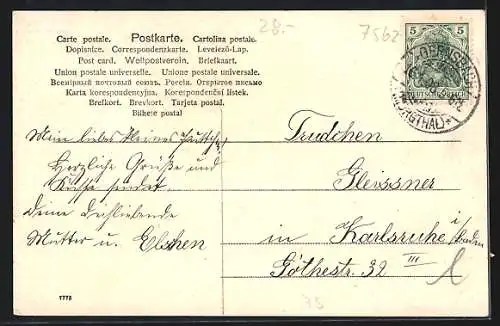 28.-
7562
Carte postale. Postkarte. Cartolina postale.
Dopisnice. Correspondenzkarte. Levelező-Lap.
Post card. Weltpostverein. Briefkaart.
Union postale universelle. Unione postale universale.
Всемірный почтовый союзъ. Россія. Открытое письмо
Karta korespondencyjna. Korespondenční listek.
Brefkort. Brevkort. Tarjeta postal.
Bilhete postal
5 5
DEUTSCHES REICH
GERNSBACH
(MURGTHAL)
Mein liebes kleines
Herzliche Grüße und
Küsse sendet
Deine Dichliebende
Mutter u. Elschen
Trudchen
Gleissner
in Karlsruhe i/Baden
Göthestr. 32 III
1778